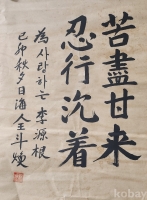 苦盡甘来
忍行沉着
為사랑하는 李源根
己卯秋夕日海人王斗煥
kobay